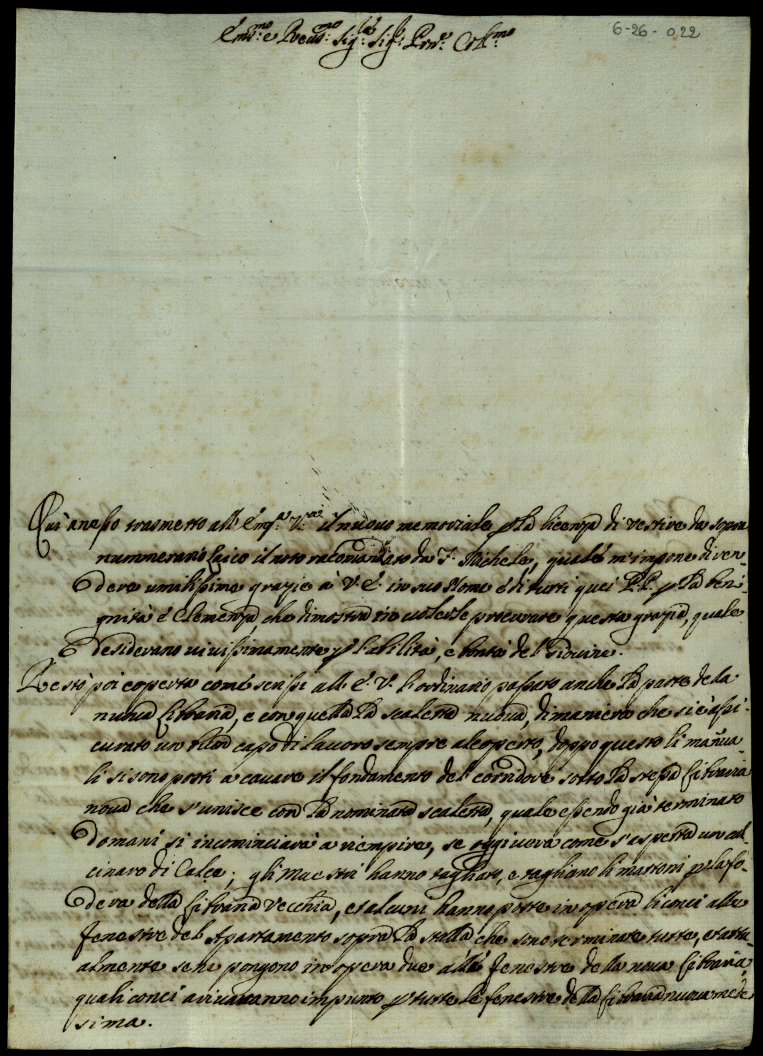 Em.mo e Reud.mo Sig.r Sig.r Pron.e Col.mo
6-26-022
Qui anesso trasmetto all' Em.a V.ra il nuouo memoriale p la licenza di vestire da sopra
nummerario Laico il noto racomandato da S. Michele, quale m'impone di ren-
dere umilissime grazie à V. E. in suo Nome è di tutti quei P.P. p la beni-
gnità è Clemenza che dimostra in uolerle procurare questa grazia, quale
desiderano uiuissimamente p l'abilità, e bontà del Giouine.
Restò poi coperta come scrissi all' E. V. l'ordinario passato anche la parte de la
nuoua Libraria, e con quella la scaletta nuoua, di maniera che si è assi-
curato un buon capo di lauoro sempre al coperto, doppo questo li manua-
li si sono posti a cauare il fondamento del coridore sotto la stessa Libraria
noua che s'unisce con la nominata scaletta, quale essendo già terminato
domani si incominciarà a riempire, se oggi uerà come s'aspetta un cal-
cinaro di Calce; gli Maestri hanno tagliato, e tagliano li mattoni p la fo-
dera della Libraria Vecchia, et alcuni hanno posto in opera li conci alle
fenestre del Apartamento sopra la stalla che sono terminate tutte, et attu-
almente se ne pongono in opera due alle fenestre della noua Libraria,
quali conci ariuaranno impunto p tutte le fenestre della Libraria nuoua mede
sima.